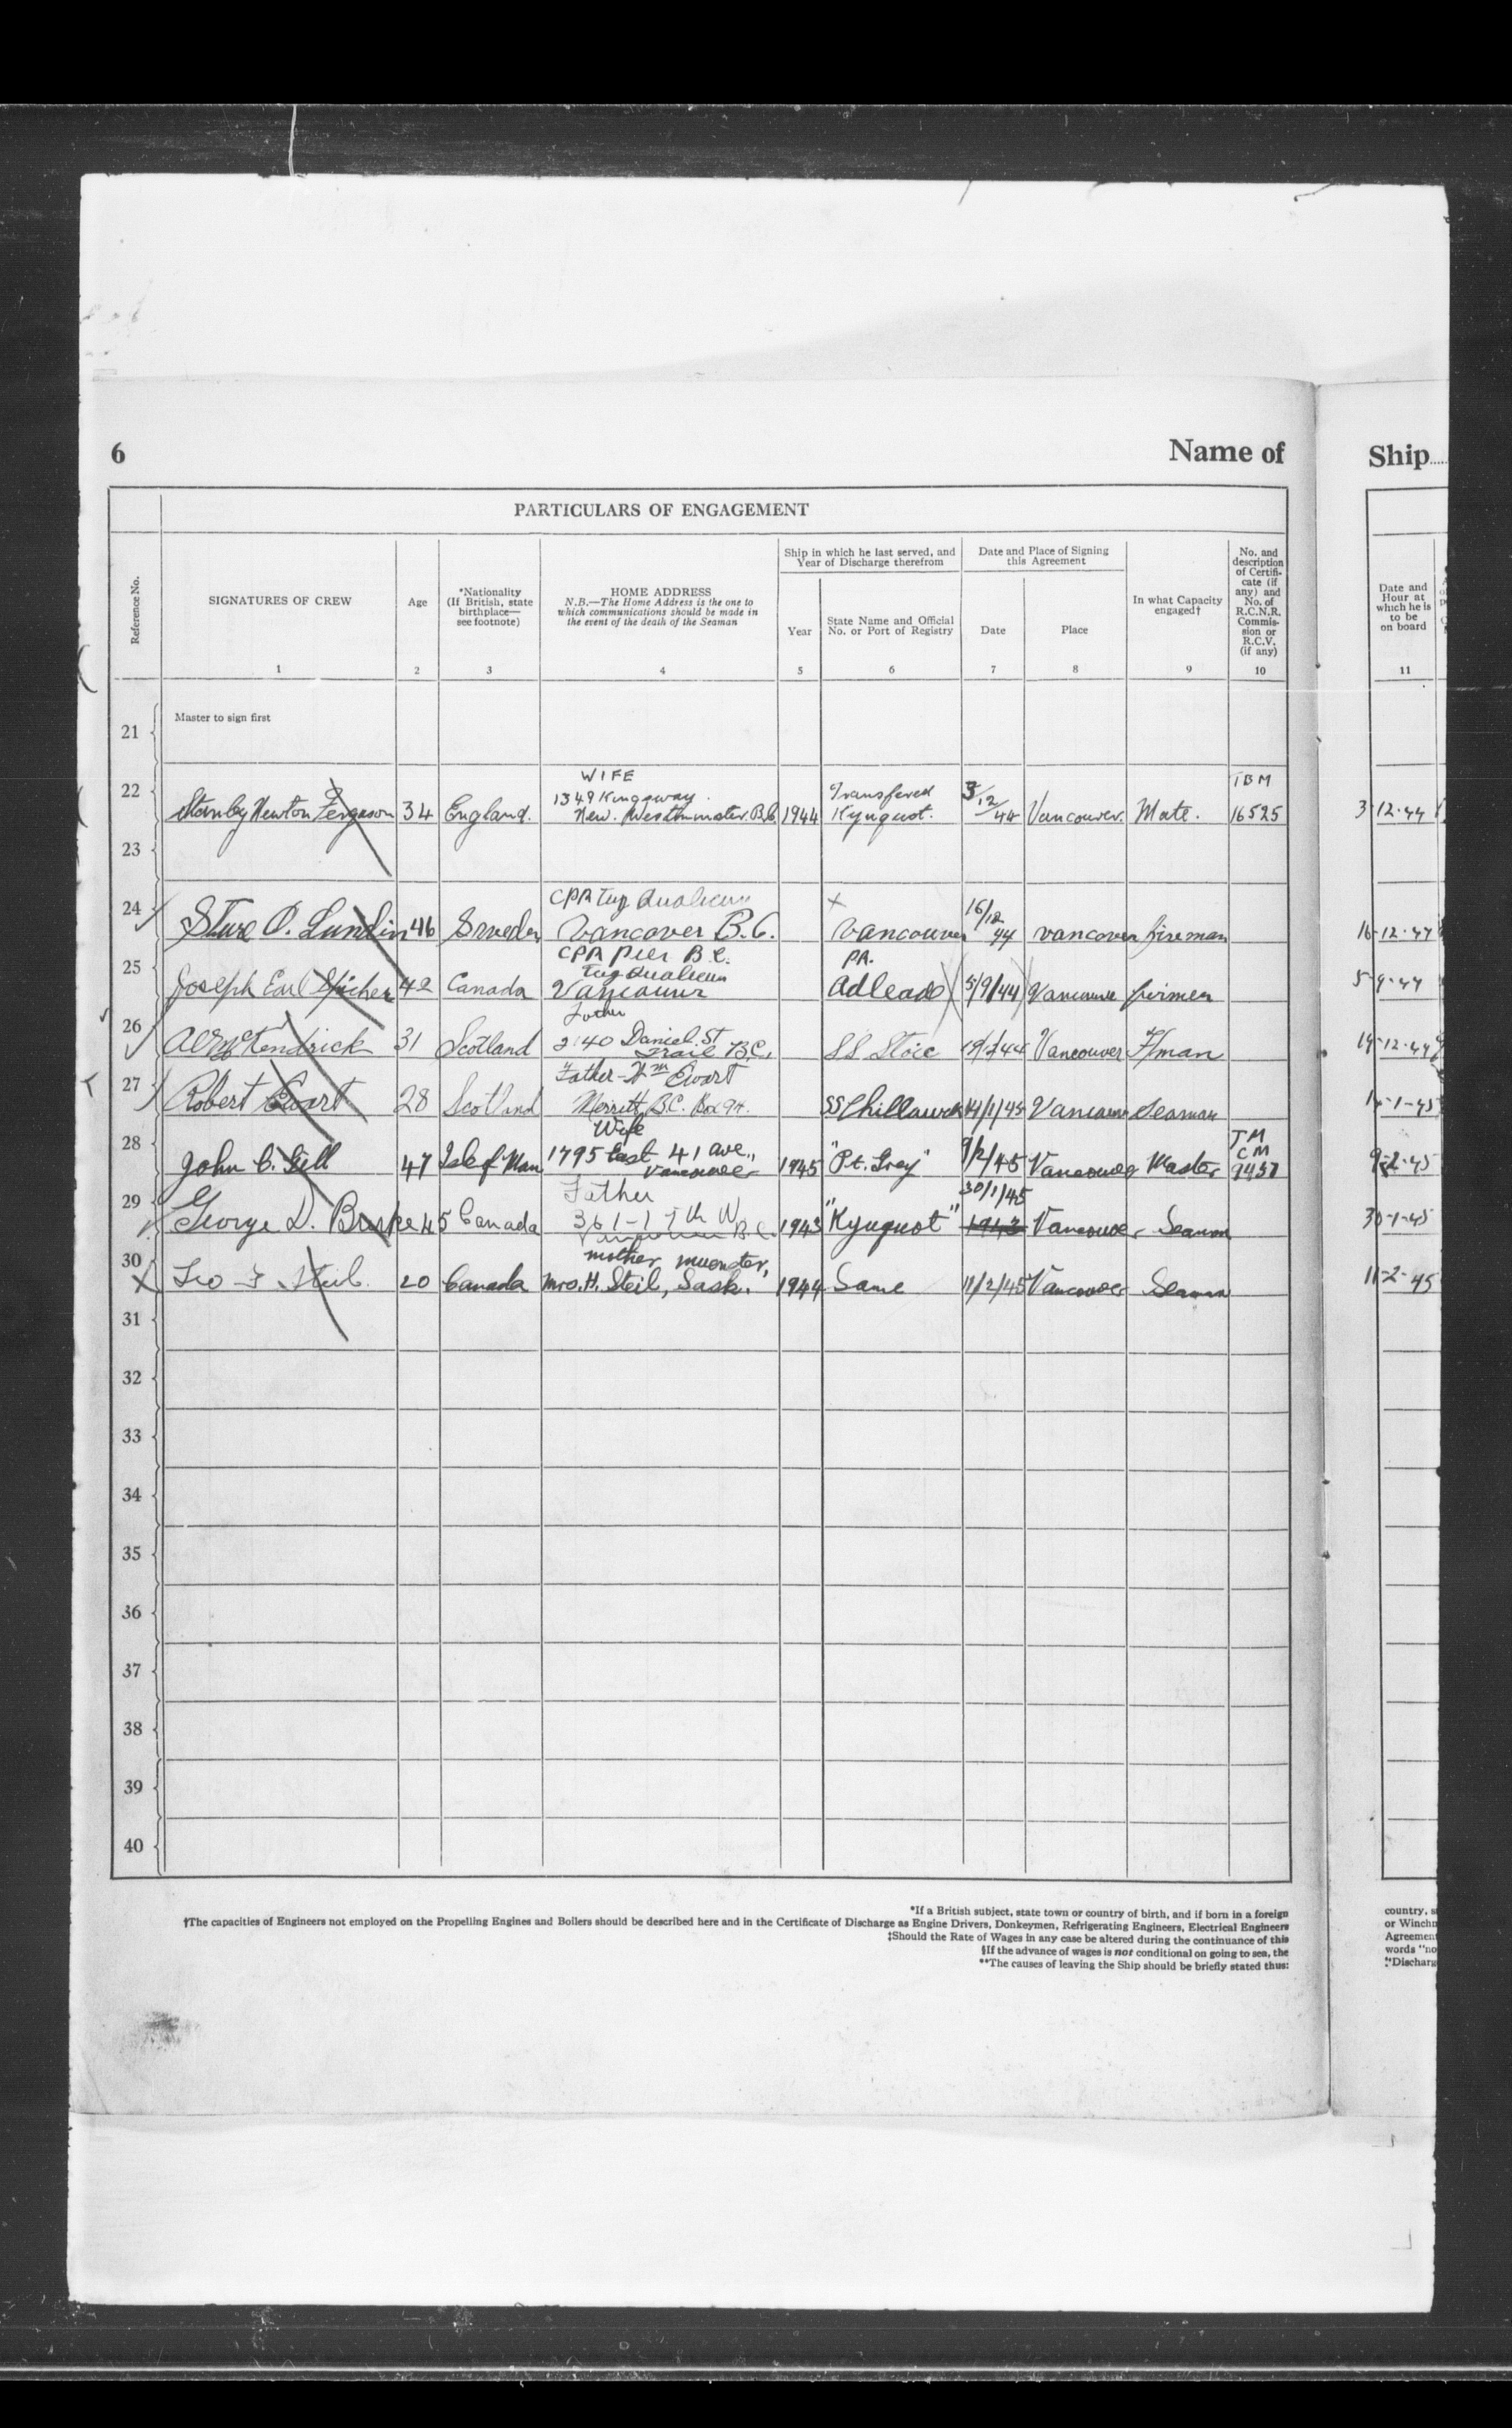 6 Name of Ship
PARTICULARS OF ENGAGEMENT
Reference No.
SIGNATURES OF CREW
1
Age
2
*Nationality
(If British, state
birthplace—
see footnote)
3
HOME ADDRESS
N.B.—The Home Address is the one to
which communications should be made in
the event of the death of the Seaman
4
Ship in which he last served, and
Year of Discharge therefrom
Year
5
State Name and Official
No. or Port of Registry
6
Date and Place of Signing
this Agreement
Date
7
Place
8
In what Capacity
engaged†
9
No. and
description
of Certifi-
cate (if
any) and
No. of
R.C.N.R.
Commis-
sion or
R.C.V.
(if any)
10
Date and
Hour at
which he is
to be
on board
11
21 Master to sign first
WIFE
22 1349 Kingsway Transfered 3/12 TBM
Stanley Newton Ferguson 34 England. New. Westminster. B.C. 1944 Kyuquot. 44 Vancouver. Mate. 16525 3-12-44
23
CPR Tug Qualicum X
24 16/12
Sture O. Lundin 46 Sweden Vancover B.C. Vancouver 44 vancover fireman 16-12-44
CPR Pier B.C. PA.
25 Tug Qualicum
Joseph Earl Spicher 42 Canada Vancouver Adleade 5/9/44 Vancouver firemen 5-9-44
26 Father
McKendrick 31 Scotland 2140 Daniel. St SS Stoic 19/12/44 Vancouver F/man 19-12-44
Trail B.C.
27 Father-Wm Ewart
Robert Ewart 28 Scotland Merritt B.C. Box 94. SS Chillawack 14/1/45 Vancouver Seaman 14-1-45
28 Wife TM
John C. Gill 47 Isle of Man 1795 East 41 Ave., 1945 "Pt. Grey" 9/2/45 Vancouver Master CM 9-2-45
Vancouver 9437
29 Father 30/1/45
George D. 45 Canada 361-17th W 1943 "Kyuquot" 1943 Vancouver Seaman 30-1-45
Vancouver B.C.
30 mother Muenster,
Leo F Steil. 20 Canada Mrs. H. Steil, Sask. 1944 Same 11/2/45 Vancouver Seaman 11-2-45
31
32
33
34
35
36
37
38
39
40
*If a British subject, state town or country of birth, and if born in a foreign
†The capacities of Engineers not employed on the Propelling Engines and Boilers should be described here and in the Certificate of Discharge as Engine Drivers, Donkeymen, Refrigerating Engineers, Electrical Engineers
‡Should the Rate of Wages in any case be altered during the continuance of this
§If the advance of wages is not conditional on going to sea, the
**The causes of leaving the Ship should be briefly stated thus:
country, s
or Winchn
Agreement
words "no
**Discharg